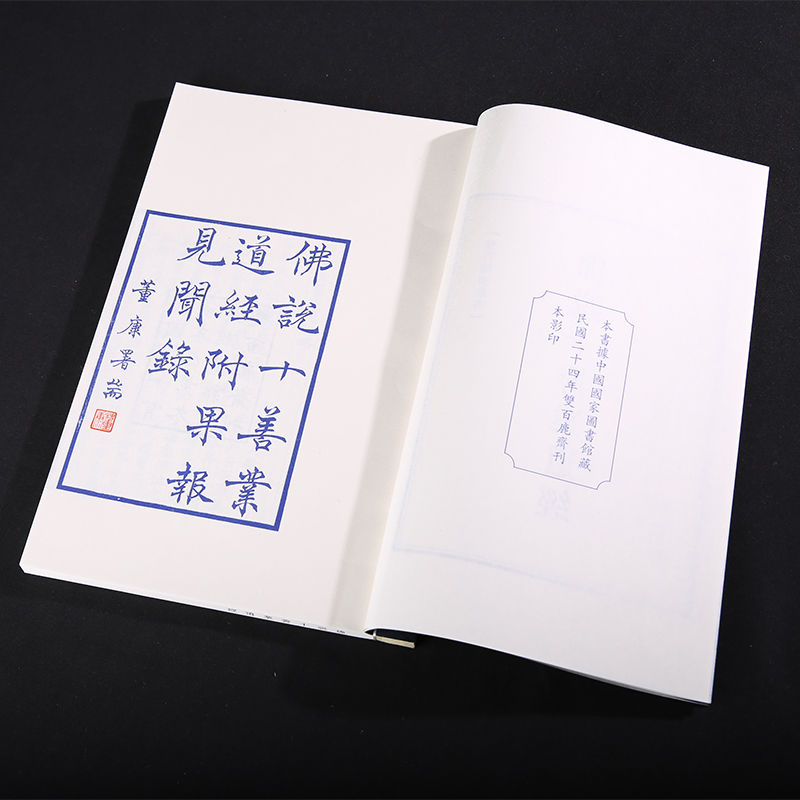 本書據中國國家圖書館藏
民國二十四年雙百鹿齋刊
本影印
佛說十善業
道經附果報
見聞錄
董康署耑